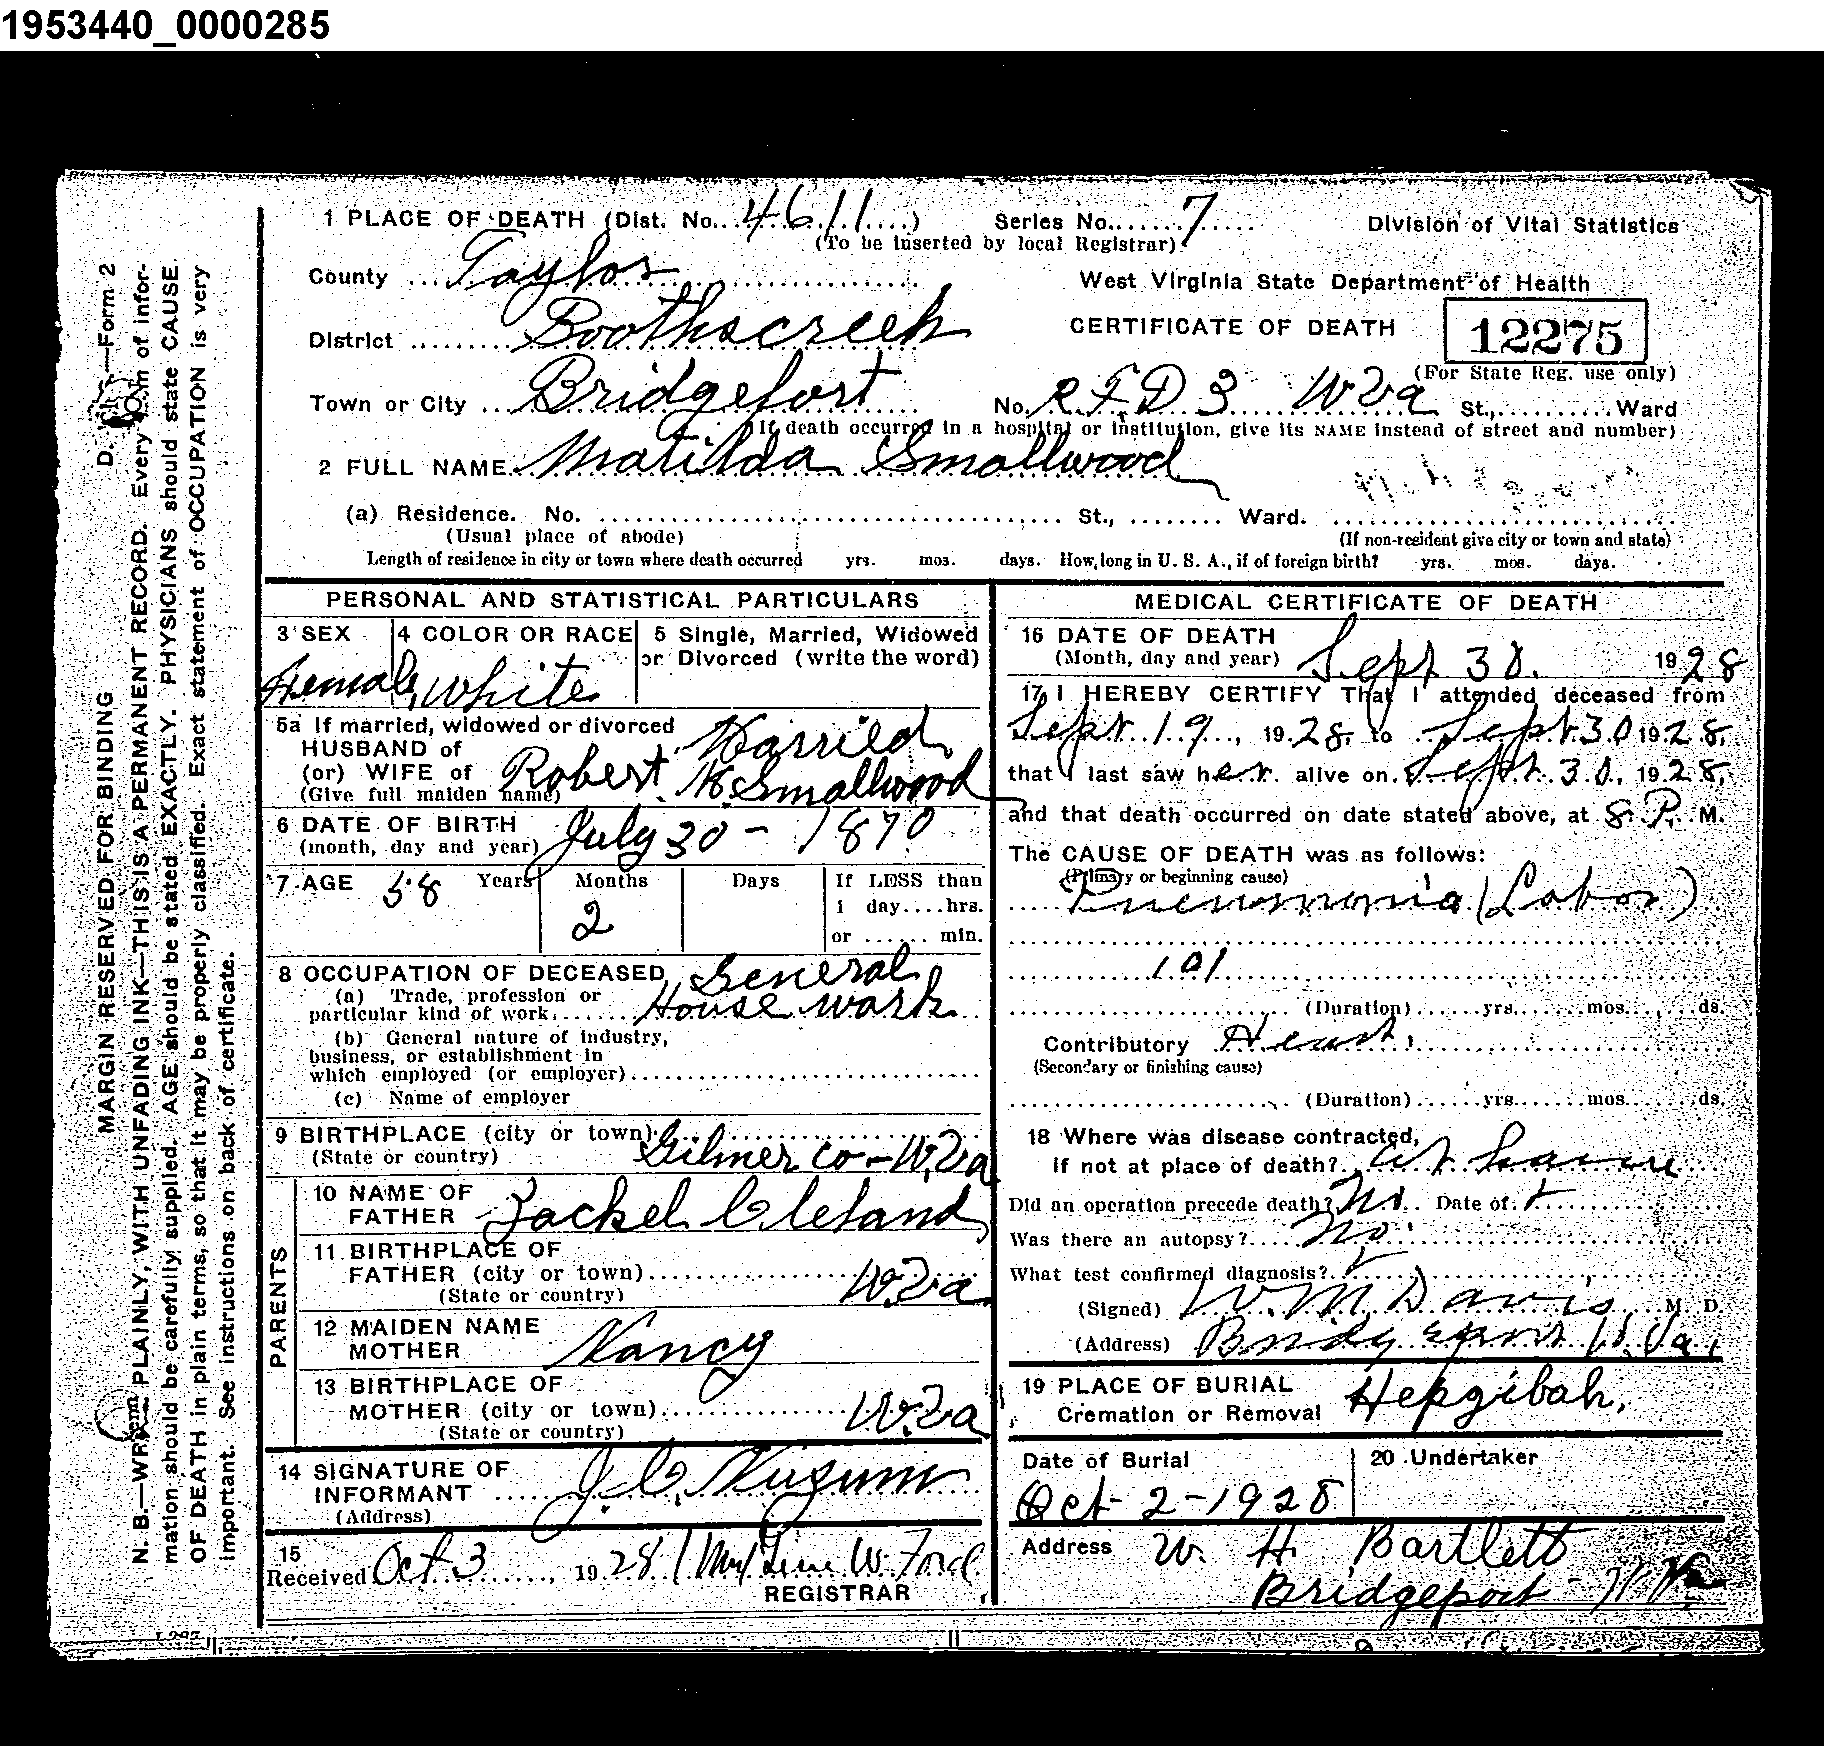 1953440_0000285
1 PLACE OF DEATH (Dist. No. 4611) Series No. 7 Division of Vital Statistics
(To be inserted by local Registrar)
County Taylor West Virginia State Department of Health
District Boothscreek CERTIFICATE OF DEATH 12275
(For State Reg. use only)
Town or City Bridgefort No. R.F.D 3 W Va St., Ward
If death occurred in a hospital or institution, give its NAME instead of street and number)
2 FULL NAME Matilda Smallwood
(a) Residence. No. St., Ward.
(Usual place of abode) (If non-resident give city or town and state)
Length of residence in city or town where death occurred yrs. mos. days. How long in U. S. A., if of foreign birth? yrs. mos. days.
PERSONAL AND STATISTICAL PARTICULARS
3 SEX 4 COLOR OR RACE 5 Single, Married, Widowed
or Divorced (write the word)
Female white
5a If married, widowed or divorced Married
HUSBAND of
(or) WIFE of Robert M. Smallwood
(Give full maiden name)
6 DATE OF BIRTH July 30 - 1870
(month, day and year)
7 AGE 58 Years Months Days If LESS than
2 1 day....hrs.
or ...... min.
8 OCCUPATION OF DECEASED General
(a) Trade, profession or
particular kind of work House work
(b) General nature of industry,
business, or establishment in
which employed (or employer)
(c) Name of employer
9 BIRTHPLACE (city or town) Gilmer Co - W.Va
(State or country)
PARENTS
10 NAME OF
FATHER Zackel Cleland
11 BIRTHPLACE OF
FATHER (city or town) W.Va
(State or country)
12 MAIDEN NAME
MOTHER Nancy
13 BIRTHPLACE OF
MOTHER (city or town) W.Va
(State or country)
14 SIGNATURE OF
INFORMANT J.C. Nuzum
(Address)
15
Received Oct 3, 1928 W. Ford
REGISTRAR
MEDICAL CERTIFICATE OF DEATH
16 DATE OF DEATH
(Month, day and year) Sept 30. 1928
17 I HEREBY CERTIFY That I attended deceased from
Sept. 19, 1928, to Sept. 30 1928,
that I last saw her alive on Sept. 30, 1928,
and that death occurred on date stated above, at 8 P. M.
The CAUSE OF DEATH was as follows:
(Primary or beginning cause)
Pneumonia (Lobar)
101
(Duration) yrs. mos. ds.
Contributory Heart.
(Secondary or finishing cause)
(Duration) yrs. mos. ds.
18 Where was disease contracted,
if not at place of death? At home
Did an operation precede death? No. Date of
Was there an autopsy? No.
What test confirmed diagnosis?
(Signed) W. M. Davis M. D.
(Address) Bridgeport W. Va.
19 PLACE OF BURIAL Hepzibah,
Cremation or Removal
Date of Burial 20 Undertaker
Oct - 2 - 1928
Address W. H. Bartlett
Bridgeport - W Va
MARGIN RESERVED FOR BINDING D. —Form 2
N. B.—WRITE PLAINLY, WITH UNFADING INK—THIS IS A PERMANENT RECORD. Every item of infor-
mation should be carefully supplied. AGE should be stated EXACTLY. PHYSICIANS should state CAUSE
OF DEATH in plain terms, so that it may be properly classified. Exact statement of OCCUPATION is very
important. See instructions on back of certificate.